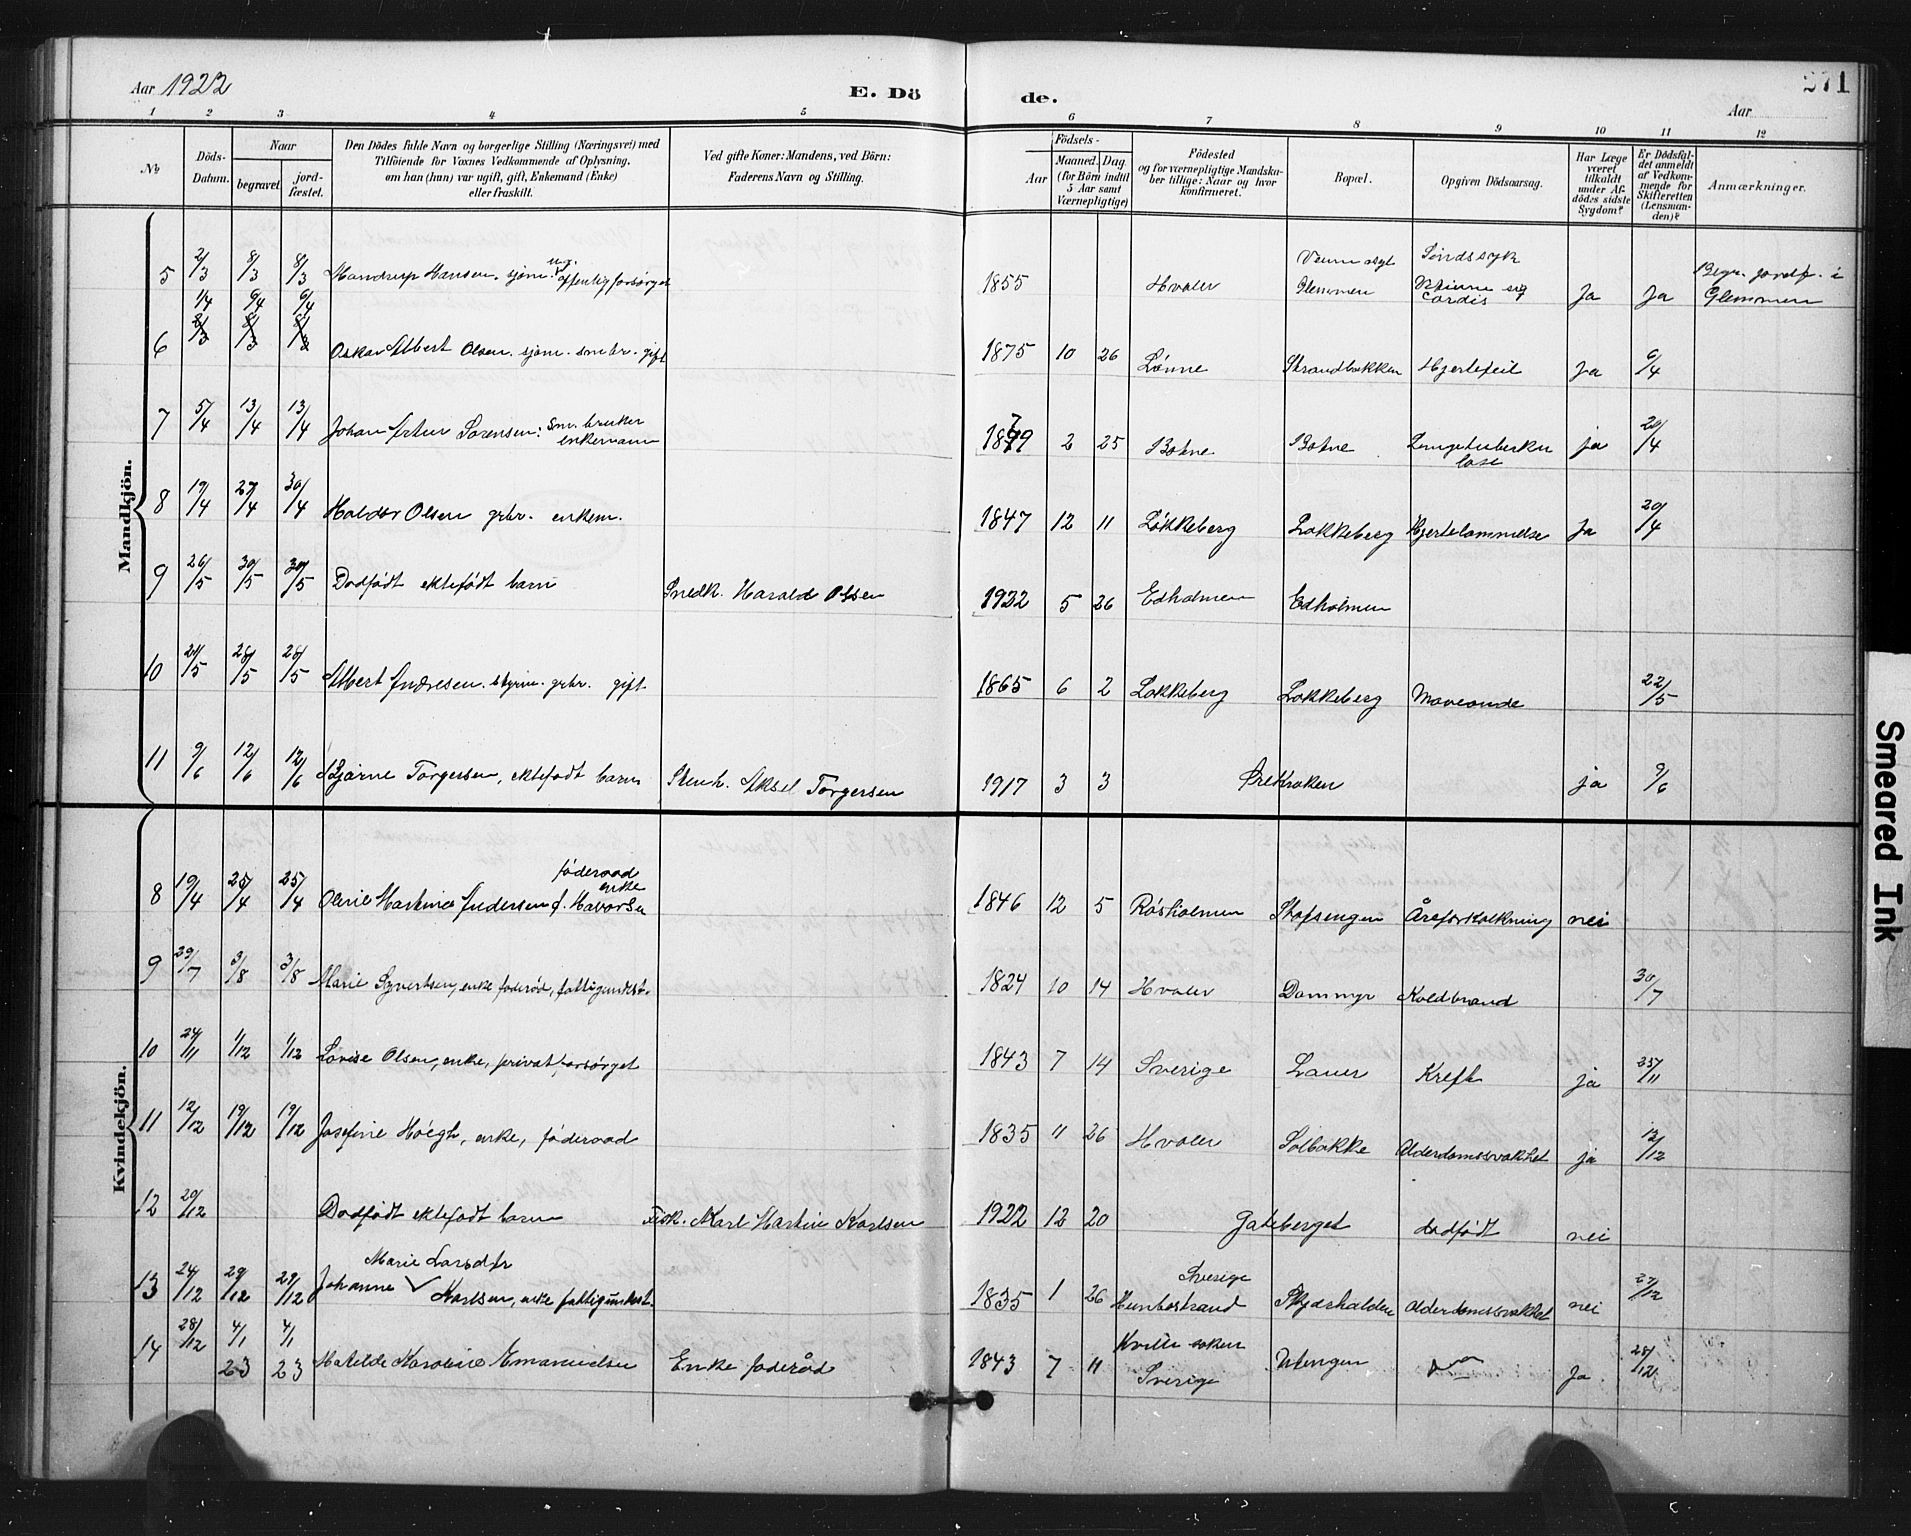 Aar 1922
E. Döde.
Aar
271
1 2 3 4 5 6 7 8 9 10 11 12
No
Döds-Datum.
Naar
begravet.
jord-fæstet.
Den Dödes fulde Navn og borgerlige Stilling (Næringsvei) med
Tilföiende for Voxnes Vedkommende af Oplysning,
om han (hun) var ugift, gift, Enkemand (Enke)
eller fraskilt.
Ved gifte Koner: Mandens, ved Börn:
Faderens Navn og Stilling.
Födsels-
Aar
Maaned. Dag
(for Börn indtil
5 Aar samt
Værnepligtige)
Födested
og for værnepligtige Mandska-
ber tillige: Naar og hvor
konfirmeret.
Bopæl.
Opgiven Dödsaarsag.
Har Læge
været
tilkaldt
under Af-
dödes sidste
Sygdom?
Er Dödsfal-
det anmeldt
af Vedkom-
mende for
Skifteretten
(Lensman-
den)?
Anmærkninger.
Mandkjön.
5 2/3 8/3 8/3 Handrup Hansen. sjøm. ug. offentlig forsørget 1855 Hvaler Glemmen Sindssyk cordis Ja Ja Begr. jordf. i Glemmen
6 1/4 6/4 6/4 Oskar Albert Olsen. sjøm. smbr. gift 1875 10 26 Lønne Strandbakken Hjertefeil Ja 6/4
7 5/4 13/4 13/4 Johan Artur Sørensen: smbruker enkemann 1879 2 25 Botne Botne Lungetuberkulose ja 20/4
8 19/4 27/4 30/4 Haldor Olsen grbr. enkem. 1847 12 11 Løkkeberg Løkkeberg Hjertelammelse Ja 20/4
9 26/5 30/5 30/5 Dødfødt ektefødt barn Snedk. Harald Olsen 1922 5 26 Edholmen Edholmen
10 21/5 28/5 28/5 Albert Andresen. grbr. gift 1865 6 2 Løkkeberg Løkkeberg Maveonde 22/5
11 9/6 12/6 12/6 Bjarne Torgersen, ektefødt barn Stenh. Aksel Torgersen 1917 3 3 Ørekroken ja 9/6
Kvindekjön.
8 19/4 25/4 25/4 Oline Martine Andersen f. Havorsen føderaad enke 1846 12 5 Røsholmen Stafsengen Åreforkalkning nei
9 29/7 3/8 3/8 Marie Syvertsen, enke føderåd, fattigunderst. 1824 10 14 Hvaler Dammyr Koldbrand 30/7
10 24/11 1/12 1/12 Lovise Olsen, enke, privat forsørget 1843 7 14 Sverige Lauer Kreft ja 25/11
11 12/12 19/12 19/12 Josefine Høegh, enke, føderaad 1835 11 26 Hvaler Solbakke Alderdomssvakhet ja 12/12
12 20/12 Dødfødt ektefødt barn Fisk. Karl Martin Karlsen 1922 12 20 Gateberget dødfødt nei
13 24/12 29/12 29/12 Johanne Marie Larsdtr Karlsen, enke fattigunderst. 1835 1 26 Sverige Hunbostrand Skjærhalden Alderdomssvakhet nei 27/12
14 28/12 4/1 23 4/1 23 Matilde Karoline Emanuelsen Enke føderåd 1843 7 11 Kville soken Sverige Utengen Do Ja 28/12
Smeared Ink